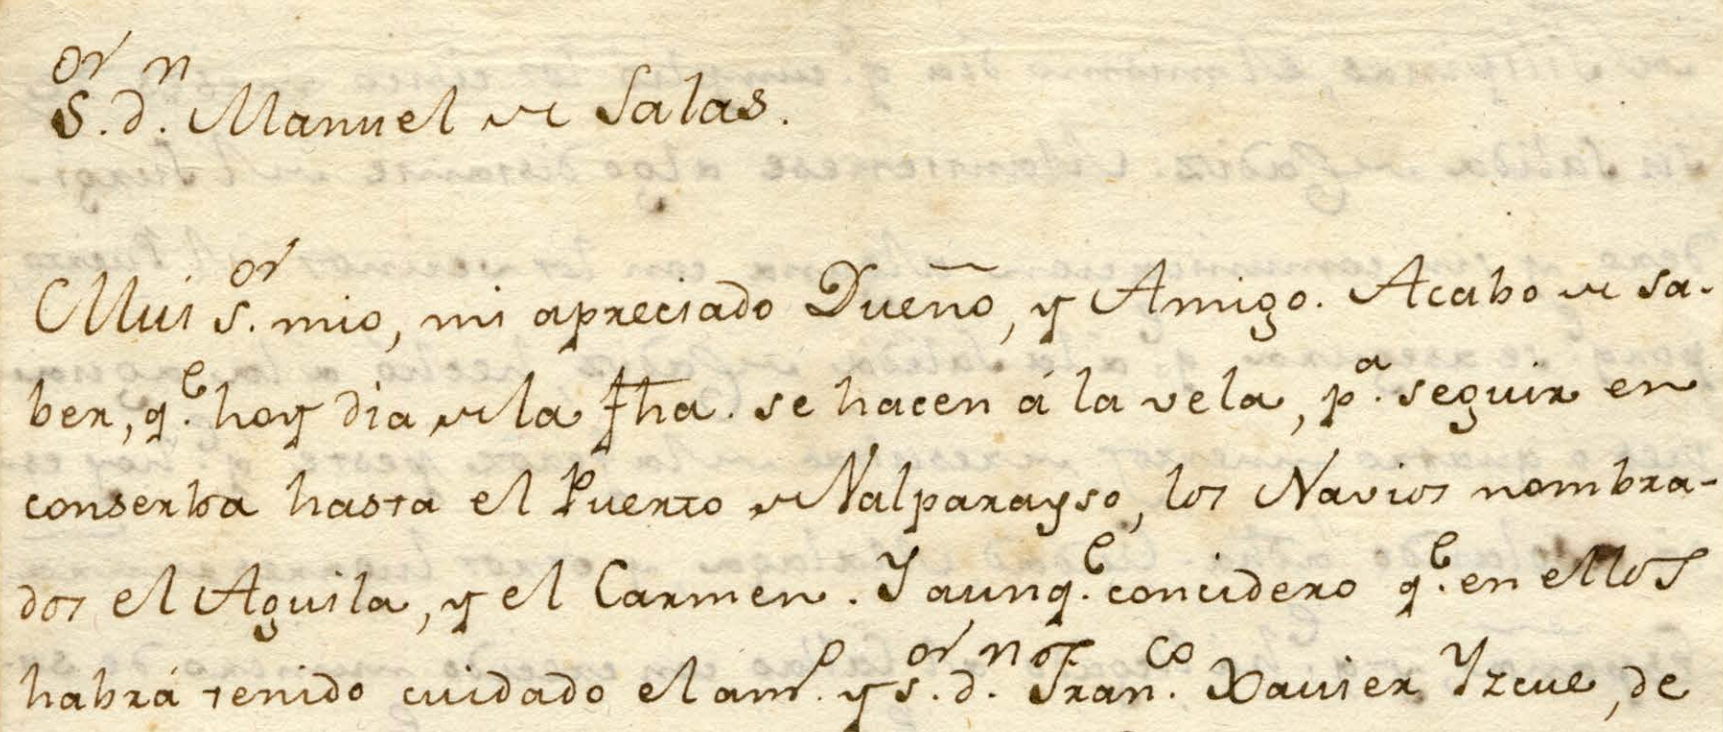 S.or d.n Manuel de Salas.
Mui s.or mio, mi apreciado Dueño, y Amigo. Acabo de sa-
ber, q.e hoy dia de la fha. se hacen á la vela, p.a seguir en
conserba hasta el Puerto de Valparayso, los Navios nombra-
dos el Aguila, y el Carmen. Y aunq.e concidero q.e en ellos
habrá tenido cuidado el am.o y s.or d.n Fran.co Xavier Yzcue, de